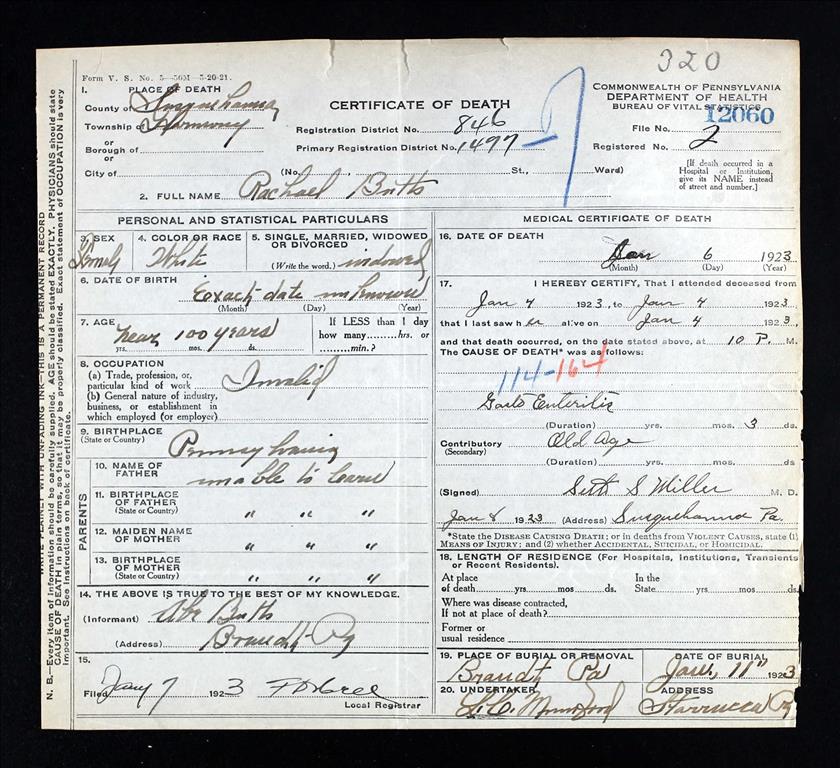 320
Form V. S. No. 5—50M—5-20-21.
1. PLACE OF DEATH
County of Susquehanna
Township of Harmony
or
Borough of
or
City of
CERTIFICATE OF DEATH
Registration District No. 846
Primary Registration District No. 1497
(No. St., Ward)
COMMONWEALTH OF PENNSYLVANIA
DEPARTMENT OF HEALTH
BUREAU OF VITAL STATISTICS
12060
File No.
Registered No. 2
[If death occurred in a
Hospital or Institution,
give its NAME instead
of street and number.]
2. FULL NAME Rachael Butts
PERSONAL AND STATISTICAL PARTICULARS
3. SEX
Female
4. COLOR OR RACE
White
5. SINGLE, MARRIED, WIDOWED
OR DIVORCED
(Write the word.) widowed
6. DATE OF BIRTH
Exact date unknown
(Month) (Day) (Year)
7. AGE
near 100 years
yrs. mos. ds.
If LESS than 1 day
how many hrs. or
min.?
8. OCCUPATION
(a) Trade, profession, or
particular kind of work Invalid
(b) General nature of industry,
business, or establishment in
which employed (or employer)
9. BIRTHPLACE
(State or Country)
Pennsylvania
PARENTS
10. NAME OF
FATHER
unable to learn
11. BIRTHPLACE
OF FATHER
(State or Country) " " "
12. MAIDEN NAME
OF MOTHER " " "
13. BIRTHPLACE
OF MOTHER
(State or Country) " " "
14. THE ABOVE IS TRUE TO THE BEST OF MY KNOWLEDGE.
(Informant) Abe Butts
(Address) Brandt Pa
15.
Filed Jany 7 1923
Local Registrar
MEDICAL CERTIFICATE OF DEATH
16. DATE OF DEATH
Jan 6 1923
(Month) (Day) (Year)
17. I HEREBY CERTIFY, That I attended deceased from
Jan 4 1923, to Jan 4 1923
that I last saw her alive on Jan 4 1923,
and that death occurred, on the date stated above, at 10 P. M.
The CAUSE OF DEATH* was as follows:
114-164
Gastro Enteritis
(Duration) yrs. mos. 3 ds
Contributory Old Age
(Secondary)
(Duration) yrs. mos. ds
(Signed) Seth S Miller M. D.
Jan 8 1923 (Address) Susquehanna Pa.
*State the DISEASE CAUSING DEATH; or in deaths from VIOLENT CAUSES, state (1)
MEANS OF INJURY; and (2) whether ACCIDENTAL, SUICIDAL, or HOMICIDAL.
18. LENGTH OF RESIDENCE (For Hospitals, Institutions, Transients
or Recent Residents).
At place In the
of death yrs. mos. ds. State yrs. mos. ds.
Where was disease contracted,
If not at place of death?
Former or
usual residence
19. PLACE OF BURIAL OR REMOVAL
Brandt Pa
DATE OF BURIAL
Jan 11" 1923
20. UNDERTAKER
ADDRESS
Starrucca Pa
PLAINLY WITH UNFADING INK—THIS IS A PERMANENT RECORD
N. B.—Every item of information should be carefully supplied. AGE should be stated EXACTLY. PHYSICIANS should state
CAUSE OF DEATH in plain terms, so that it may be properly classified. Exact statement of OCCUPATION is very
important. See instructions on back of certificate.